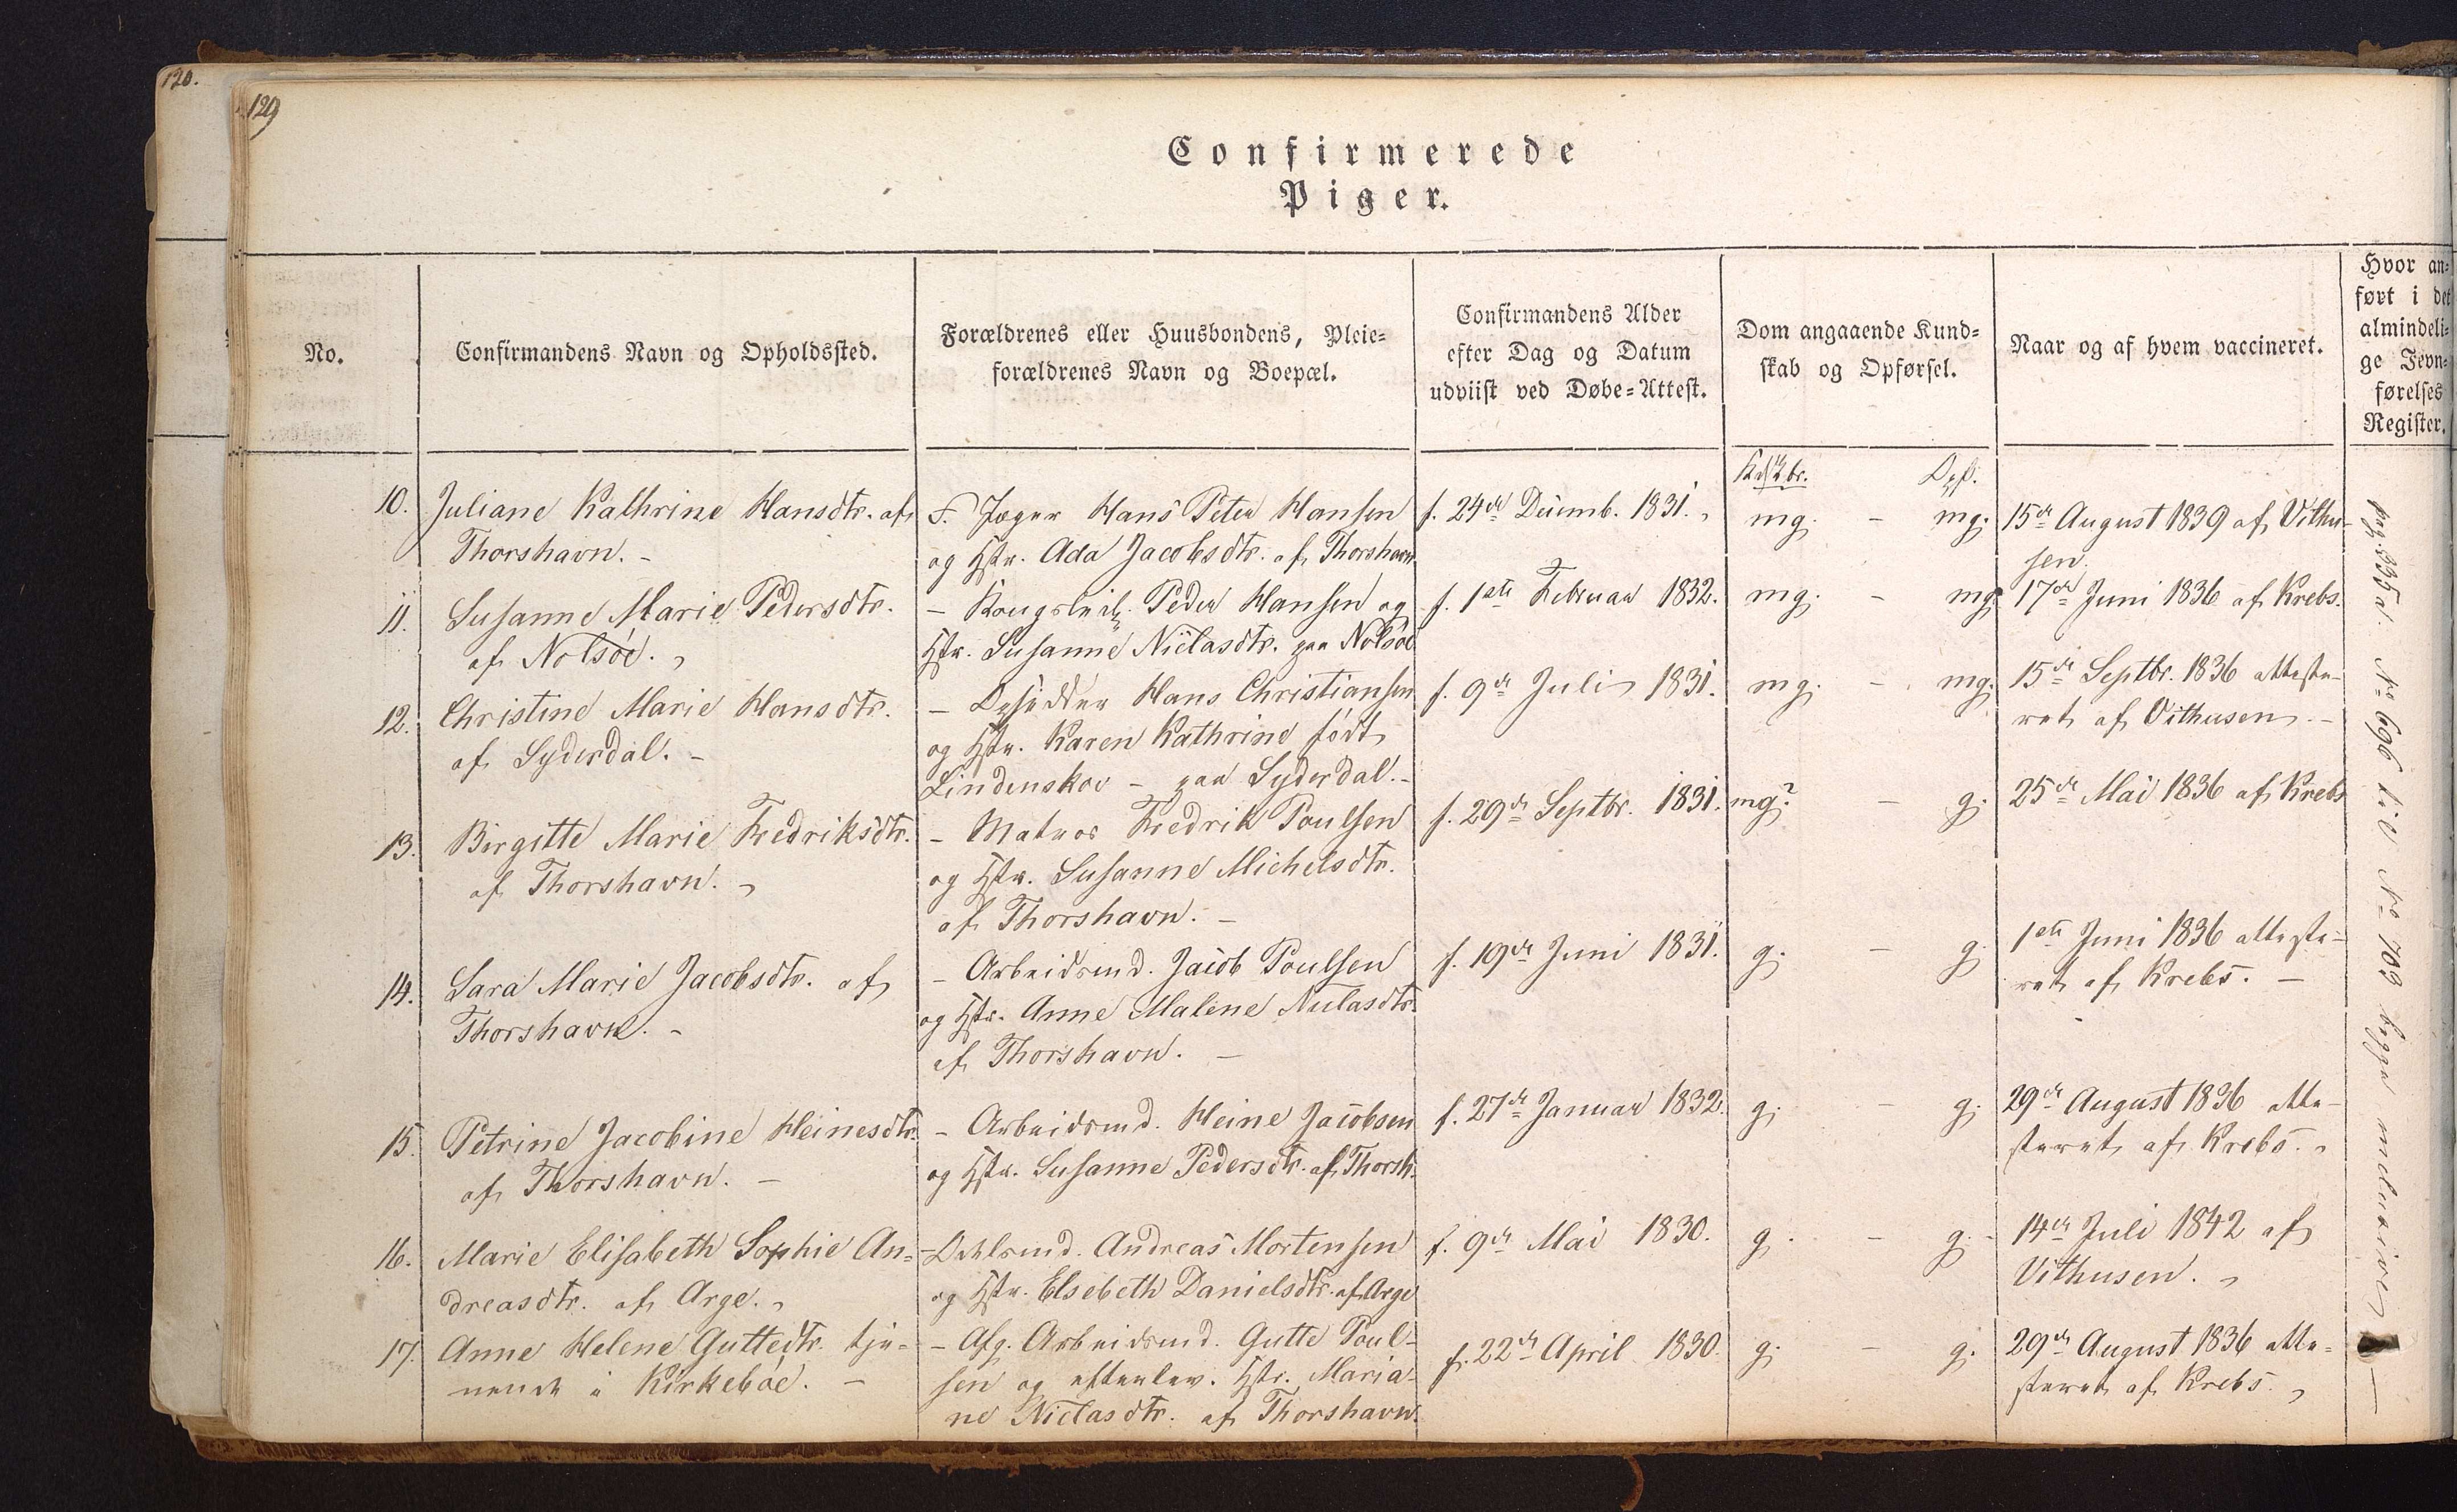 120.
129
Confirmerede
Piger.
No.
Confirmandens Navn og Opholdssted.
Forældrenes eller Huusbondens, Pleie-
forældrenes Navn og Boepæl.
Confirmandens Alder
efter Dag og Datum
udviist ved Døbe-Attest.
Dom angaaende Kund-
skab og Opførsel.
Naar og af hvem vaccineret.
Hvor an-
ført i det
almindeli-
ge Jevn-
førelses
Register.
Kdskbr. Opf.
10.
Juliane Kathrine Hansdtr. af
Thorshavn. -
F. Jæger Hans Peter Hansen
og Hstr. Ada Jacobsdtr. af Thorshavn
f. 24de Decemb. 1831.
mg. - mg.
15de August 1839 af Vithu-
sen.
11.
Susanne Marie Pedersdtr.
af Nolsöe.
- Peder Hansen og
Hstr. Susanne Niclasdtr. paa Nolsöe
f. 1ste Februar 1832.
mg. - mg.
17de Juni 1836 af Krebs.
12.
Christine Marie Hansdtr.
af Syderdal. -
- Opsidder Hans Christiansen
og Hstr. Karen Kathrine født
Lindenskov - paa Syderdal. -
f. 9de Juli 1831.
mg. - mg.
15de Septbr. 1836 atteste-
ret af Vithusen. -
13.
Birgitte Marie Fredriksdtr.
af Thorshavn.
- Matros Fredrik Poulsen
og Hstr. Susanne Michelsdtr.
af Thorshavn. -
f. 29de Septbr. 1831.
mg? - g.
25de Mai 1836 af Krebs
14.
Sara Marie Jacobsdtr. af
Thorshavn. -
- Arbeidsmd. Jacob Poulsen
og Hstr. Anne Malene Niclasdtr.
af Thorshavn. -
f. 19de Juni 1831.
g. - g.
1ste Juni 1836 atteste-
ret af Krebs. -
15.
Petrine Jacobine Heinesdtr.
af Thorshavn. -
- Arbeidsmd. Heine Jacobsen
og Hstr. Susanne Pedersdtr. af Thorsh.
f. 27de Januar 1832.
g. - g.
29de August 1836 atte-
steret af Krebs.
16.
Marie Elisabeth Sophie An-
dreasdtr. af Arge.
- Andreas Mortensen
og Hstr. Elsebeth Danielsdtr. af Arge
f. 9de Mai 1830.
g. - g. -
14de Juli 1842 af
Vithusen.
17.
Anne Helene Guttedtr. tje-
nende i Kirkeböe. -
- Afg. Arbeidsmd. Gutte Poul-
sen og efterlev. Hstr. Maria-
ne Niclasdtr. af Thorshavn.
f. 22de April 1830.
g. - g.
29de August 1836 atte-
steret af Krebs.
pag. 335 a. No 696 til No 703 begge inclusive -